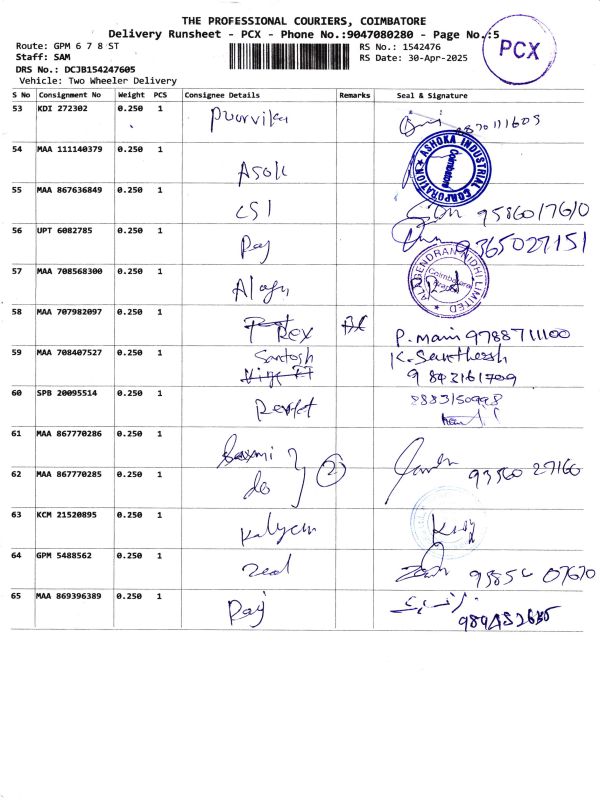 THE PROFESSIONAL COURIERS, COIMBATORE
Delivery Runsheet - PCX - Phone No.:9047080280 - Page No.:5
PCX
Route: GPM 6 7 8 ST
RS No.: 1542476
Staff: SAM
RS Date: 30-Apr-2025
DRS No.: DCJB154247605
Vehicle: Two Wheeler Delivery
S No Consignment No Weight PCS Consignee Details Remarks Seal & Signature
53 KDI 272302 0.250 1 Poorvika
54 MAA 111140379 0.250 1 Asok ASHOKA INDUSTRIAL CORPORATION Coimbatore
55 MAA 867636849 0.250 1 CSI 9586017610
56 UPT 6082785 0.250 1 Raj 9365027151
57 MAA 708568300 0.250 1 Alagu ALAGENDRAN NIDHI LIMITED Coimbatore
58 MAA 707982097 0.250 1 Rex P. Mani 9788711100
59 MAA 708407527 0.250 1 Santosh K. Santhosh
9843161709
60 SPB 20095514 0.250 1 8883150998
61 MAA 867770286 0.250 1 Laxmi
62 MAA 867770285 0.250 1 do 2 93560 27160
63 KCM 21520895 0.250 1 Kalyan
64 GPM 5488562 0.250 1 Zeal 93854 07670
65 MAA 869396389 0.250 1 Raj